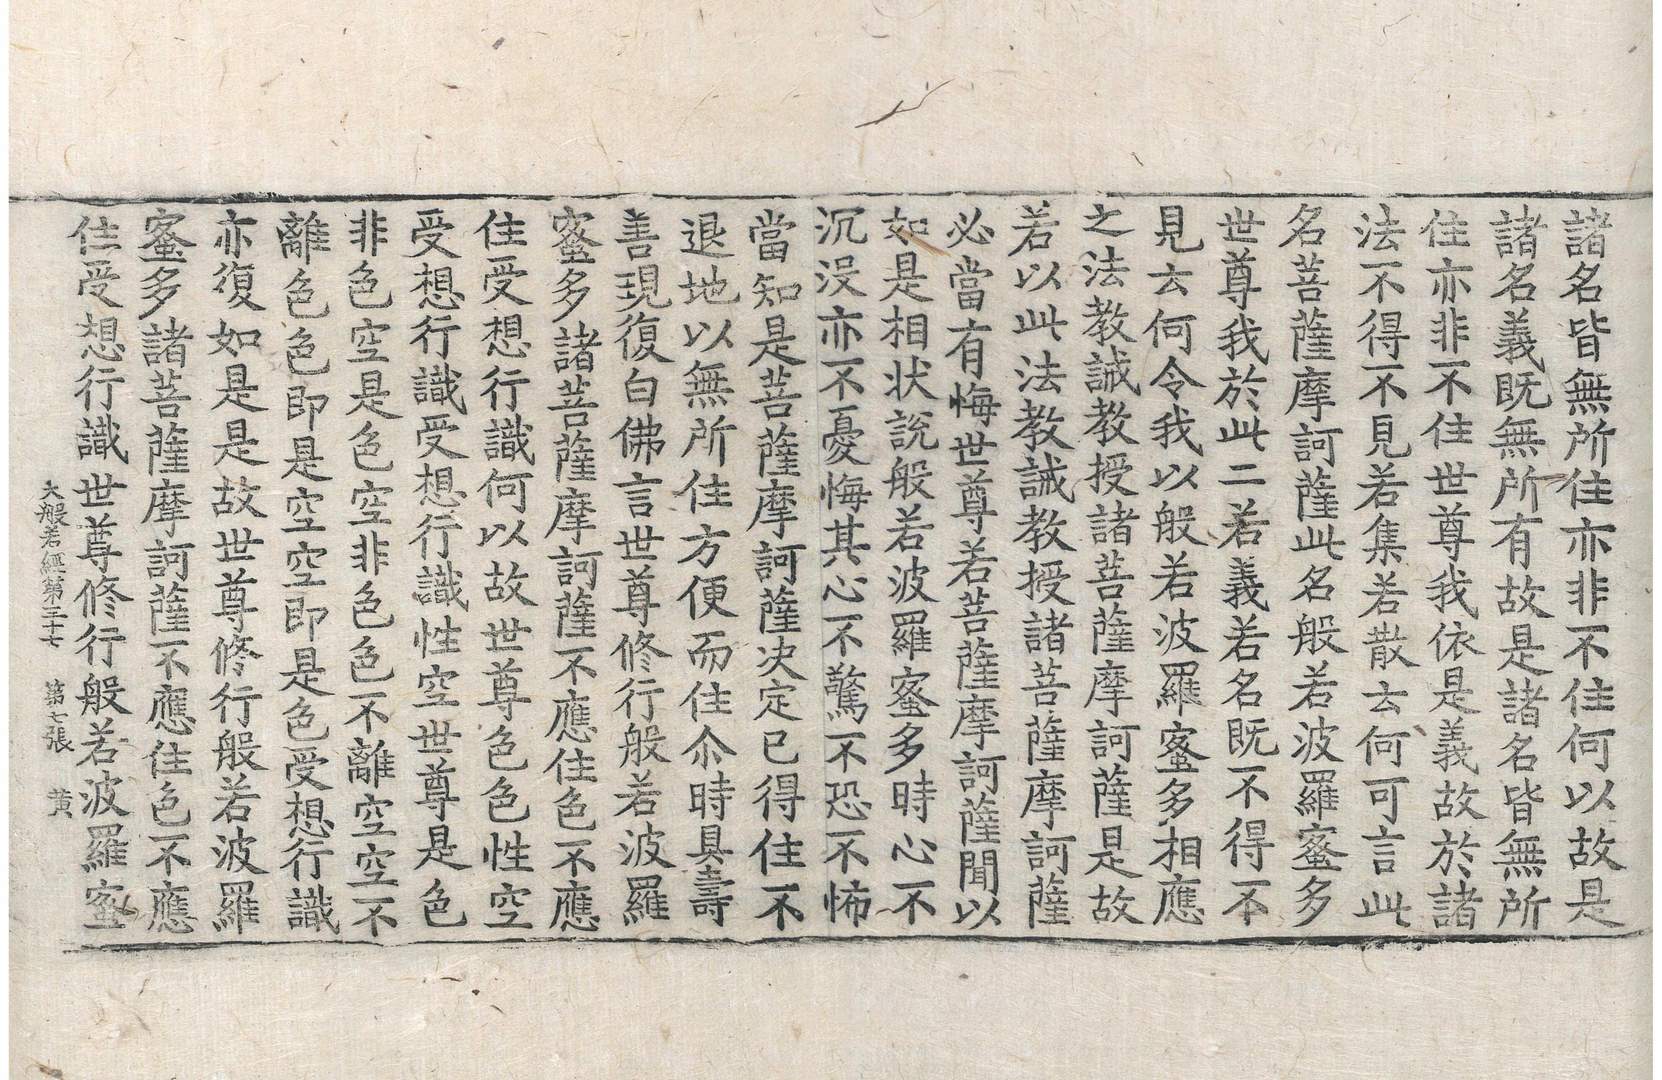 諸名皆無所住亦非不住何以故是
諸名義既無所有故是諸名皆無所
住亦非不住世尊我依是義故於諸
法不得不見若集若散云何可言此
名菩薩摩訶薩此名般若波羅蜜多
世尊我於此二若義若名既不得不
見云何令我以般若波羅蜜多相應
之法教誡教授諸菩薩摩訶薩是故
若以此法教誡教授諸菩薩摩訶薩
必當有悔世尊若菩薩摩訶薩聞以
如是相狀說般若波羅蜜多時心不
沉没亦不憂悔其心不驚不恐不怖
當知是菩薩摩訶薩决定已得住不
退地以無所住方便而住尒時具壽
善現復白佛言世尊修行般若波羅
蜜多諸菩薩摩訶薩不應住色不應
住受想行識何以故世尊色色性空
受想行識受想行識性空世尊是色
非色空是色空非色色不離空空不
離色色即是空空即是色受想行識
亦復如是是故世尊修行般若波羅
蜜多諸菩薩摩訶薩不應住色不應
住受想行識世尊修行般若波羅蜜
大般若經第三十七 第七張 黄